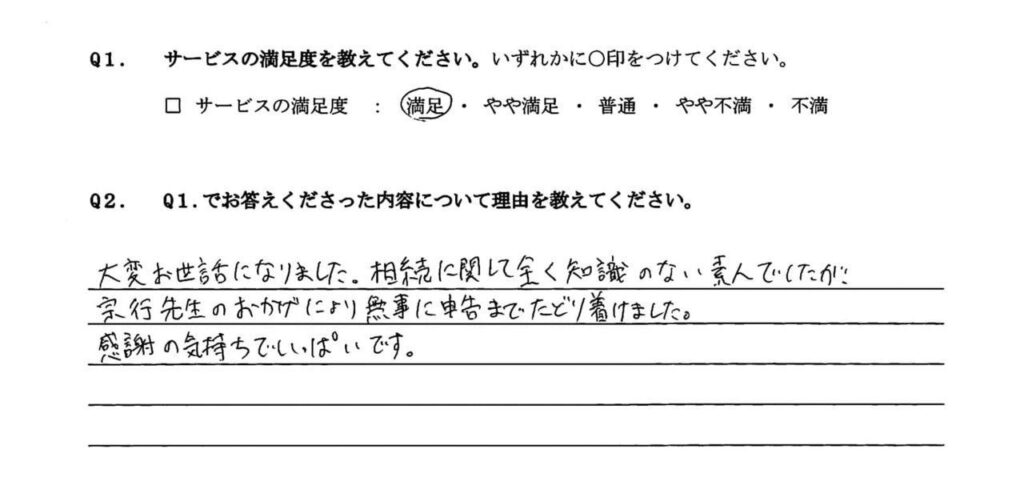 Q1. サービスの満足度を教えてください。いずれかに〇印をつけてください。
□ サービスの満足度 : 満足・ やや満足 ・ 普通 ・ やや不満 ・ 不満
Q2. Q1.でお答えくださった内容について理由を教えてください。
大変お世話になりました。相続に関して全く知識のない素人でしたが
宗行先生のおかげにより無事に申告までたどり着けました。
感謝の気持ちでいっぱいです。